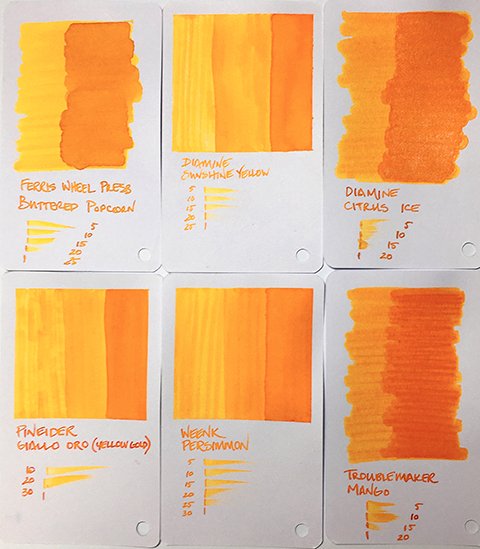 FERRIS WHEEL PRESS
BUTTERED POPCORN
5
10
15
20
25
DIAMINE
SUNSHINE YELLOW
5
10
15
20
25
DIAMINE
CITRUS ICE
5
10
15
20
PINEIDER
GIALLO ORO (YELLOW GOLD)
10
20
30
WEENK
PERSIMMON
5
10
15
20
25
30
TROUBLEMAKER
MANGO
5
10
15
20